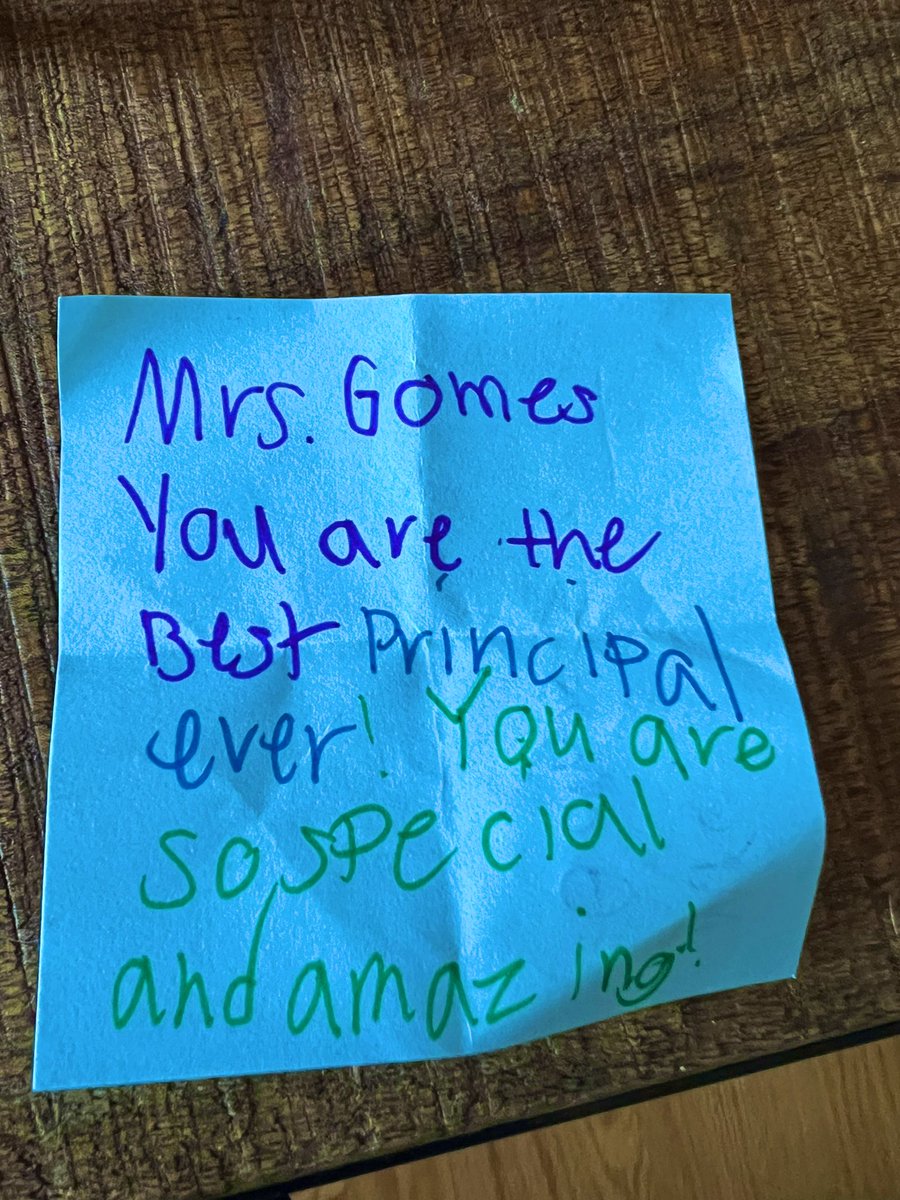 Mrs. Gomes
You are the
Best Principal
ever! You are
so special
and amazing!